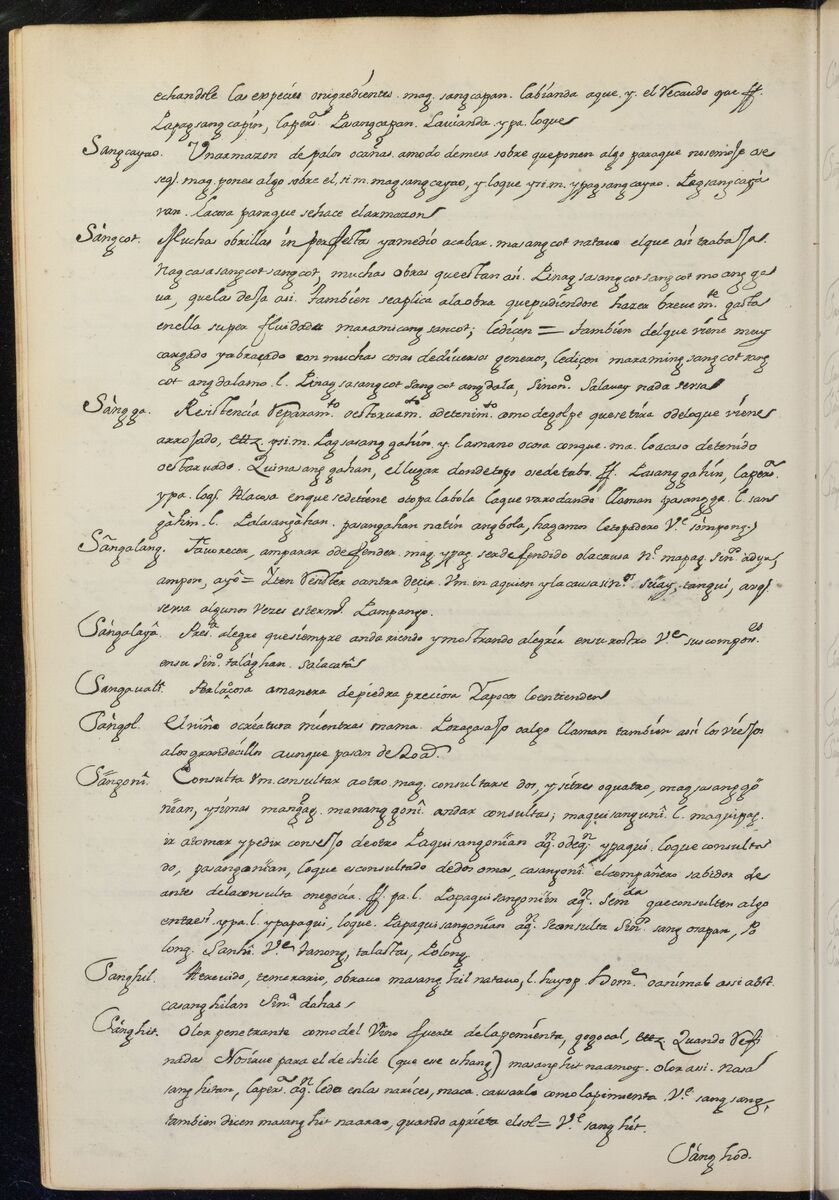 echandole las expecies onigredientes. mag. sangcapan. labianda aque. y. el recaudo que ff.
Papagsangcapin, laperã. Pasangcapan. Lavianda. ypa. loque
Sangcayao. Unarmazon de palos ocañas. amodo demesa sobre queponen algo paraque nosemoje ose
seq̃. mag. poner algo sobre el. si. m. magsangcayao, y loque ysi. m. ypagsangcayao. Pagsangcaya
van. Lacosa paraque sehace elarmazon
Sángcot. Muchas obrillas in perfectas yamedio acabar. masangcot natauo elque asi trabaja.
Nagcasasangcot sangcot, muchas obras queestan asi. Pinagsasangcot sangcot mo ang ga
ua, quelas deja asi. Tambien seaplica alaobra quepudiendose hazer breuem.te gasta
enella super fluidades maramicang sancot; ledicen = tambien delque viene muy
cargado yabraçado con muchas cosas dediversos generos, ledicen maraming sang cot sang
cot ang dalamo. l. Pinagsasangcot sang cot angdala, sinon. salauay nada sersa
Sángga. Resistencia Reparam.to oestoruam.to odetenim.to como degolpe quesetira odeloque viene
arrojado, ettz ysi. m. Pagsasang gahin. y. lamano ocosa conque. ma. loacaso detenido
oestoruado. Quinasang gahan, el lugar dondetopo osedetubo. ff. Pasang gahin, laperã.
ypa. loq̃. Alacosa enque sedetiene otopa labola laque varodando llaman pasangga. l. san
gàhin. l. Palasangàhan. pasangahan natin angbola, hagamos letopadero Ve. sompong.
Sãngalang. Favorecer, amparar odefender. mag. ypag. serdefendido olacausa No. mapag. Sino. adya,
ampon, ayõ = Yten Resistir contra decir. Vm. in aquien yla causa sinos. suay, tangui,
sersa algunas vezes estermo. Pampango.
Sángalayà. Persa. alegre quesiempre anda riendo ymostrando alegria ensu rostro Ve. sus compones.
ensu Sino. talàghan. salacatà
Sangauali. Perla, cosa amanera depiedra preciosa Yapocos loentienden
Sángol. Elniño ocreatura mientras mama. Poragasajo oalgo llaman tambien assi los viejos
alos grandecillos aunque pasan de 20 as.
Sãngoni. Consulta Vm. consultar aotro. mag. consultarse dos, y sitres oquatro, magsasanggo
nian, ysimas mangag. manang goni. andar consultas; maquisanguni. l. maquipag.
ir atomar ypedir consejo deotro Paquisangonian aq.n odeq.n ypaqui. loque consulta
do, pasangonian, loque esconsultado dedos omas, casangoni. elcompañero sabidor de
antes delaconsulta onegocia. ff. pa. l. Papaquisangonien aq.n semda queconsulten algo
entresi. ypa. l. ypapaqui, loque. Papaquisangonian aq.n seconsulta Sino. sang osapan, Po
long. Sanhi. Ve. Vanong, talastas, Polong.
Sanghil. Atrevido, temerario, obravo masang hil natauo, l. hayop. Home. oanimal assi abst.
casanghilan Sino. dahas
Sánghit. Olor penetrante como del Vino fuerte delapemienta, gogocal, ettz Quando
nadas Nosirve para el de chile (que ese eshang) masang hit naamoy. olor asi. Nasa
sanghitan, laperã. aq.n leda enlas narices, maca. causarlo como lapimienta. Ve. sang sang,
tambien dicen masang hit naarao, quando aprieta elsol = Ve. sang hit.
Sáng hod.